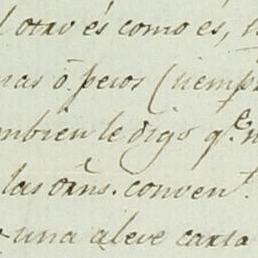 otro és como és,
mas ō peros (siempr
mbien le digo qᵉ n
las orñs. convenᵗ.
una aleve carta